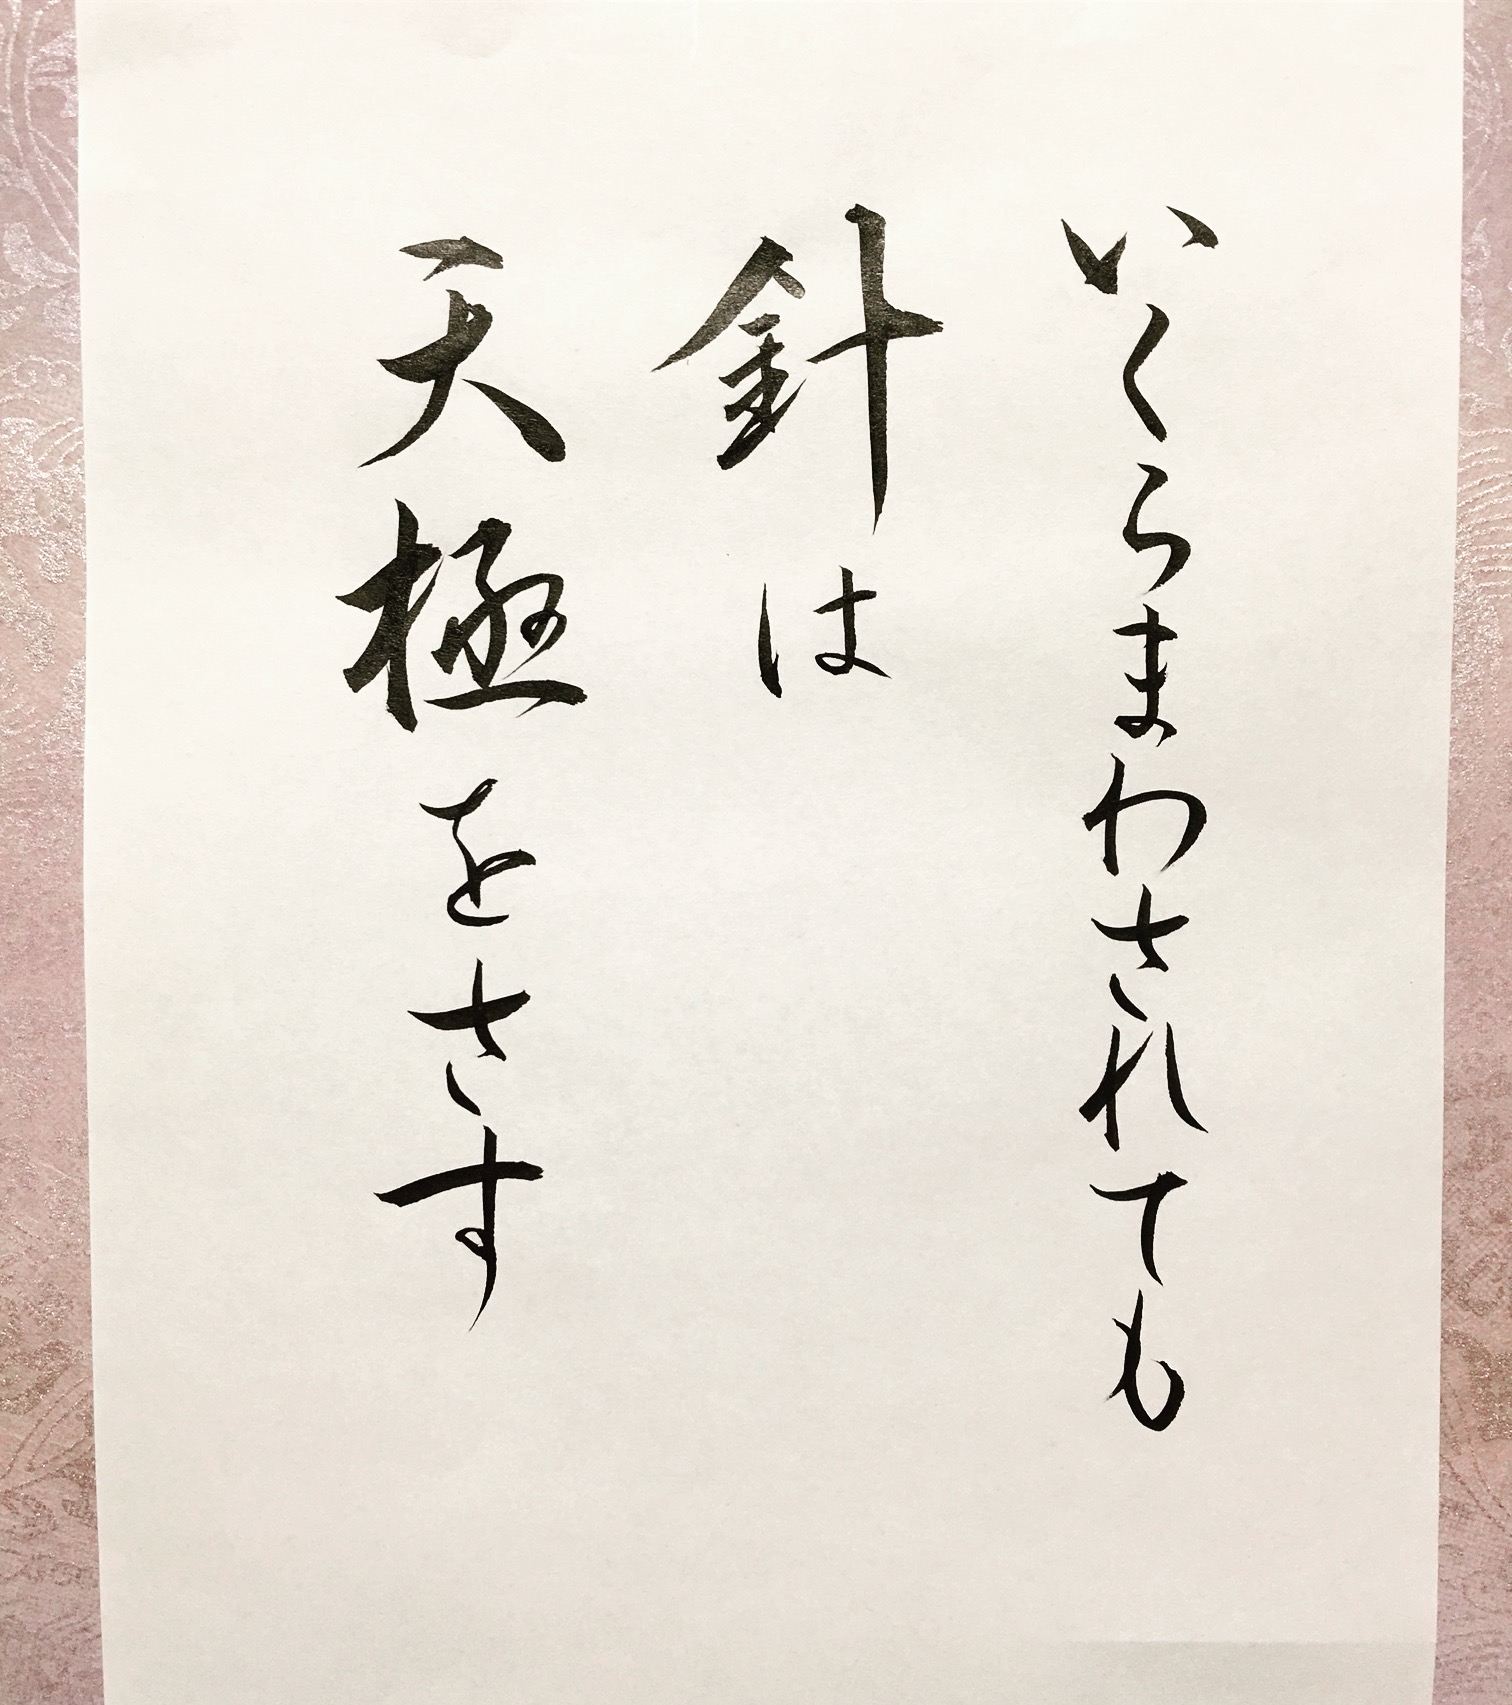 いくらまわされても
針は
天極をさす